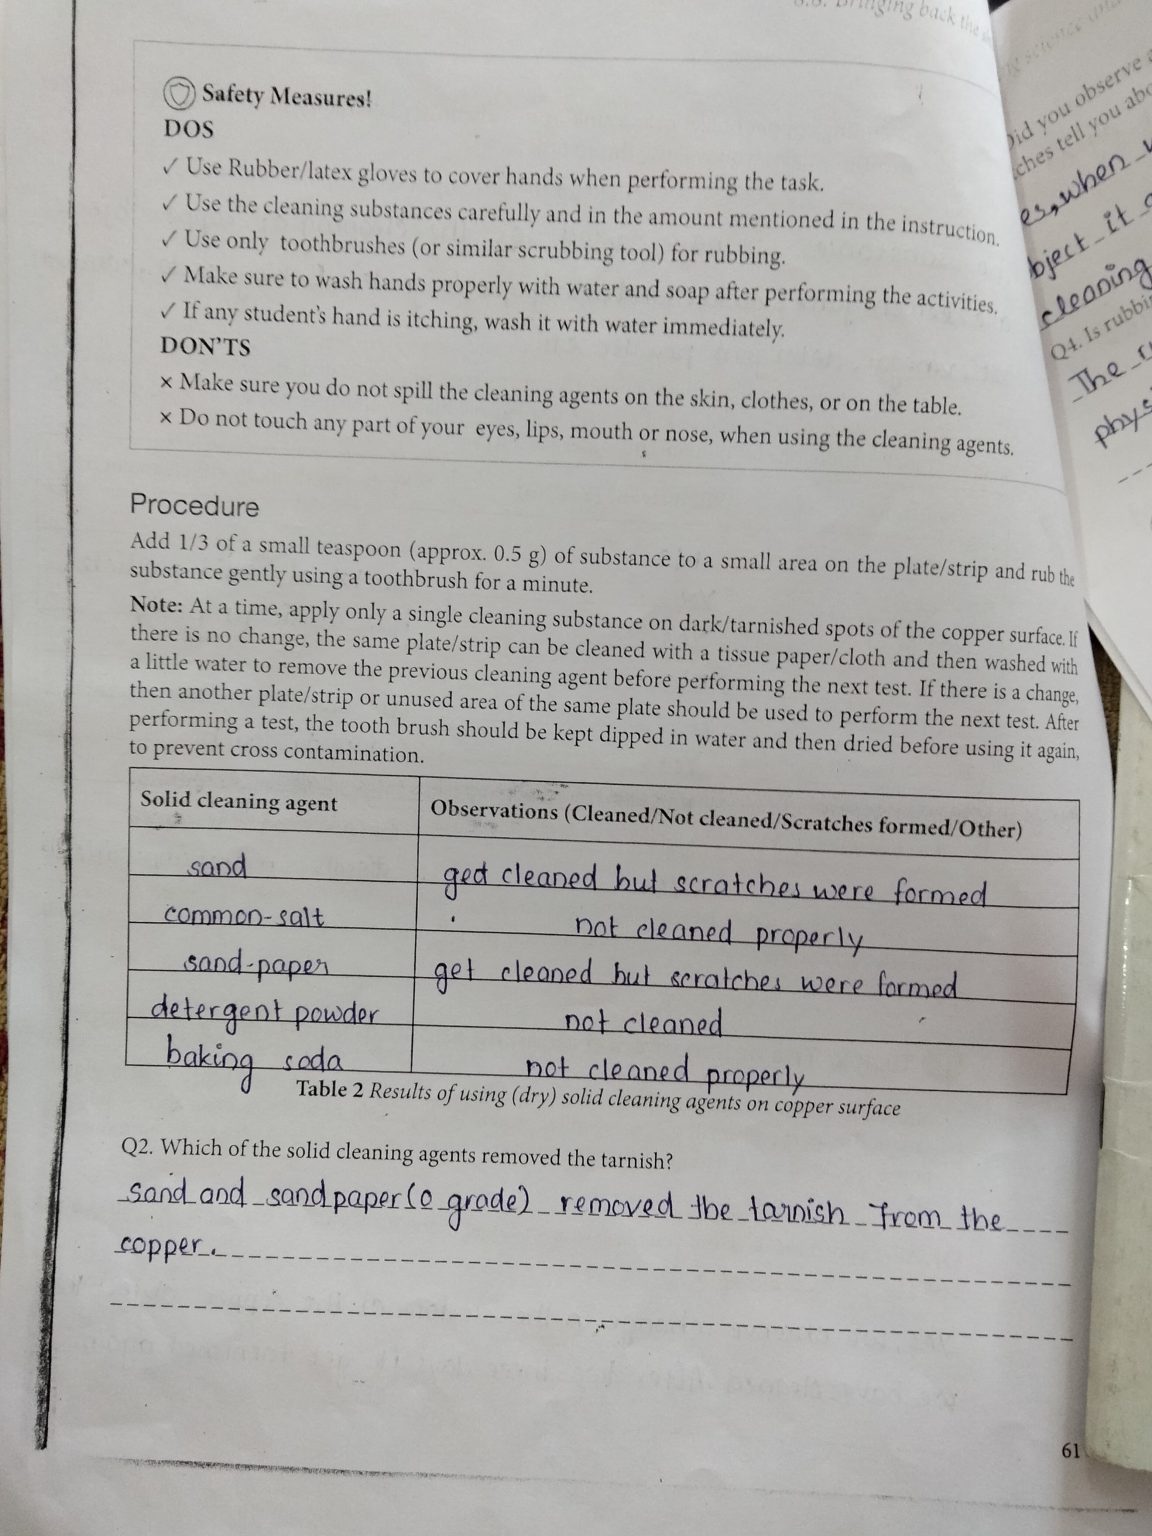 8.8. Bringing back the
Safety Measures!
DOS
✓ Use Rubber/latex gloves to cover hands when performing the task.
✓ Use the cleaning substances carefully and in the amount mentioned in the instruction.
✓ Use only toothbrushes (or similar scrubbing tool) for rubbing.
✓ Make sure to wash hands properly with water and soap after performing the activities.
✓ If any student's hand is itching, wash it with water immediately.
DON'TS
× Make sure you do not spill the cleaning agents on the skin, clothes, or on the table.
× Do not touch any part of your eyes, lips, mouth or nose, when using the cleaning agents.
Procedure
Add 1/3 of a small teaspoon (approx. 0.5 g) of substance to a small area on the plate/strip and rub the
substance gently using a toothbrush for a minute.
Note: At a time, apply only a single cleaning substance on dark/tarnished spots of the copper surface. If
there is no change, the same plate/strip can be cleaned with a tissue paper/cloth and then washed with
a little water to remove the previous cleaning agent before performing the next test. If there is a change,
then another plate/strip or unused area of the same plate should be used to perform the next test. After
performing a test, the tooth brush should be kept dipped in water and then dried before using it again,
to prevent cross contamination.
Solid cleaning agent Observations (Cleaned/Not cleaned/Scratches formed/Other)
sand ged cleaned but scratches were formed
common-salt not cleaned properly
sand-paper get cleaned but scratches were formed
detergent powder not cleaned
baking soda not cleaned properly
Table 2 Results of using (dry) solid cleaning agents on copper surface
Q2. Which of the solid cleaning agents removed the tarnish?
sand and sandpaper (0 grade) removed the tarnish from the
copper.
61
Did you observe
tell you
when
it
cleaning
Q4. Is
The